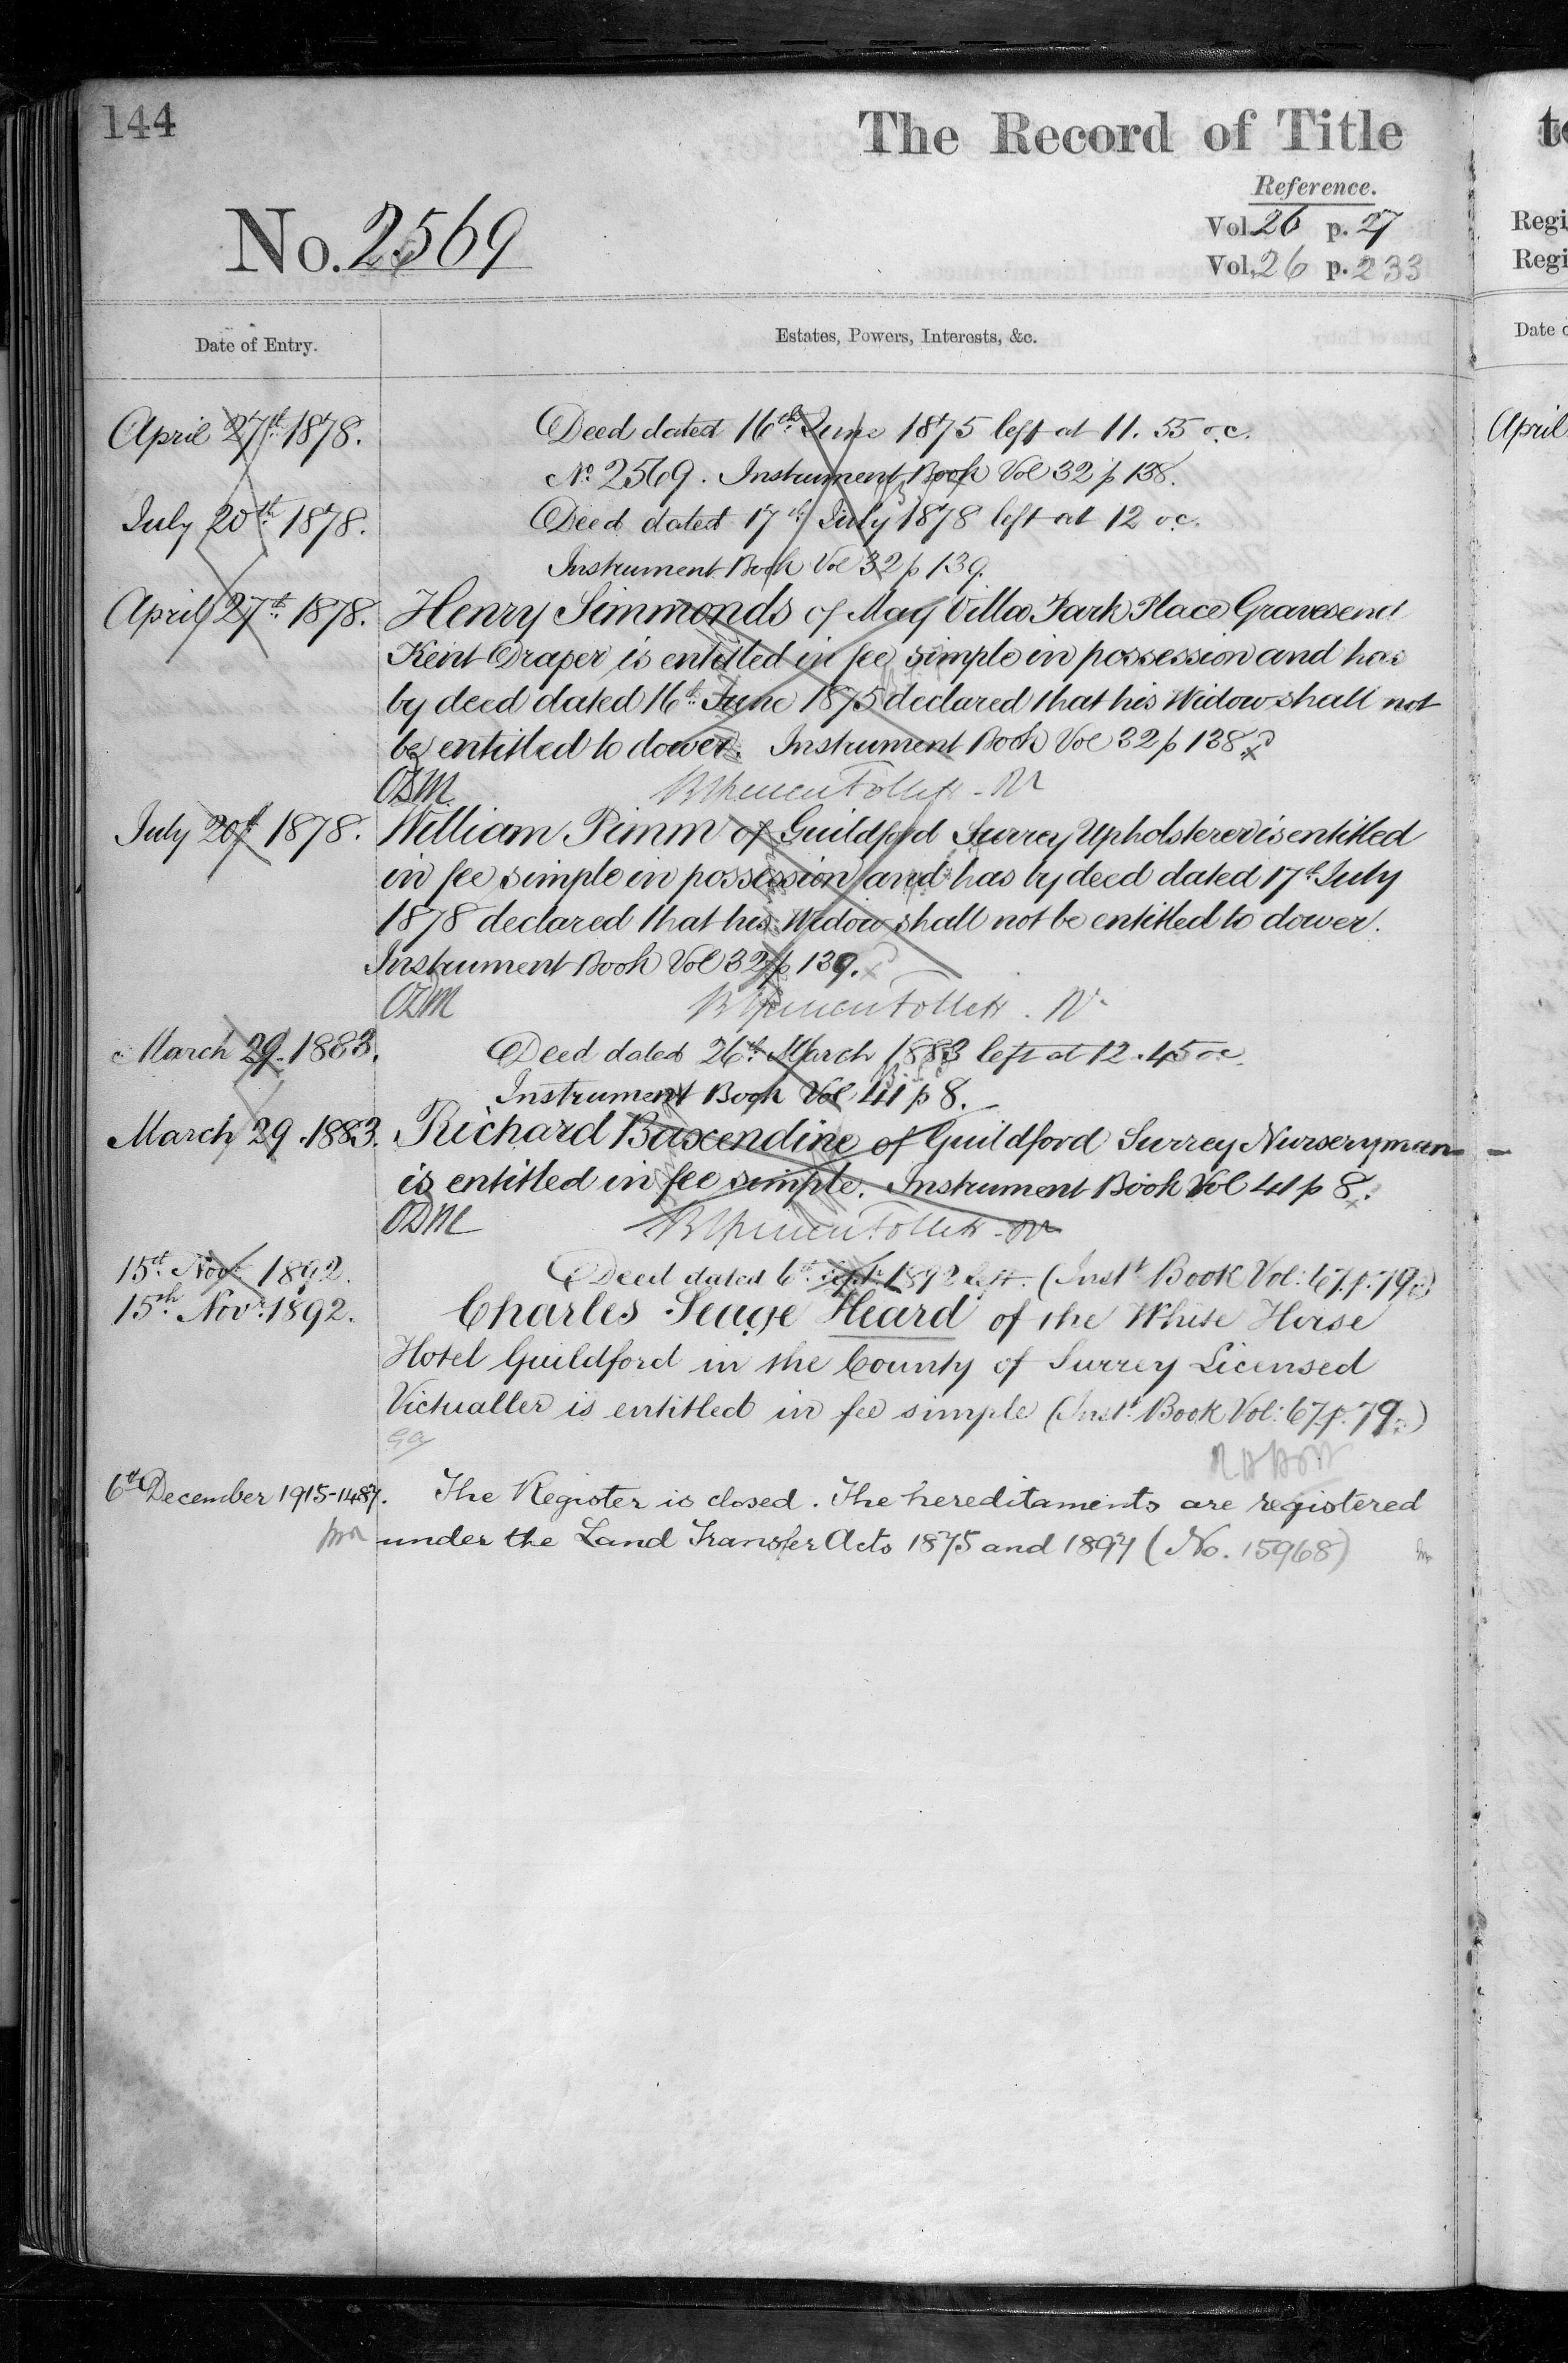 144
The Record of Title
Reference.
No. 2569
Vol. 26 p. 27
Vol. 26 p. 233
Date of Entry.
Estates, Powers, Interests, &c.
April 27th 1878.
Deed dated 16th June 1875 left at 11.55 o.c.
No. 2569. Instrument Book Vol 32 p 138.
July 20th 1878.
Deed dated 17th July 1878 left at 12 o.c.
Instrument Book Vol 32 p 139.
April 27th 1878.
Henry Simmonds of May Villa Park Place Gravesend
Kent Draper is entitled in fee simple in possession and has
by deed dated 16th June 1875 declared that his Widow shall not
be entitled to dower. Instrument Book Vol 32 p 138.
ODM
July 20th 1878.
William Pimm of Guildford Surrey Upholsterer is entitled
in fee simple in possession and has by deed dated 17th July
1878 declared that his Widow shall not be entitled to dower.
Instrument Book Vol 32 p 139.
ODM
March 29. 1883.
Deed dated 26th March 1883 left at 12.45 o.c.
Instrument Book Vol 41 p 8.
March 29. 1883.
Richard Baxendine of Guildford Surrey Nurseryman
is entitled in fee simple. Instrument Book Vol 41 p 8.
ODM
15th Novr. 1892.
Deed dated 6th Sept. 1892 left. (Inst. Book Vol: 67. p. 79.)
15th Novr. 1892.
Charles Seage Heard of the White Horse
Hotel Guildford in the County of Surrey Licensed
Victualler is entitled in fee simple (Inst. Book Vol: 67. p. 79.)
6th December 1915-1487.
The Register is closed. The hereditaments are registered
under the Land Transfer Acts 1875 and 1897 (No. 15968)
Regi
Regi
Date
April